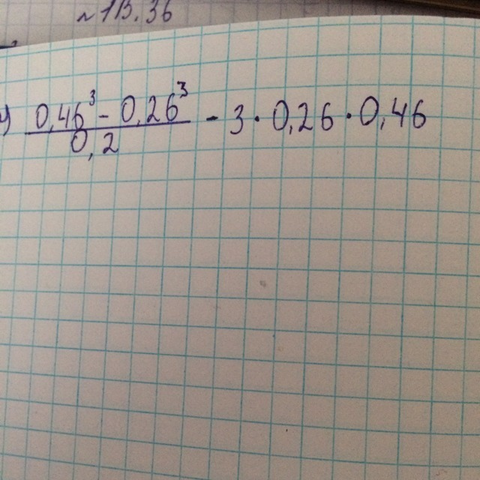 ~ 1B.36
) 0,46³ - 0,26³ / 0,2 - 3 · 0,26 · 0,46